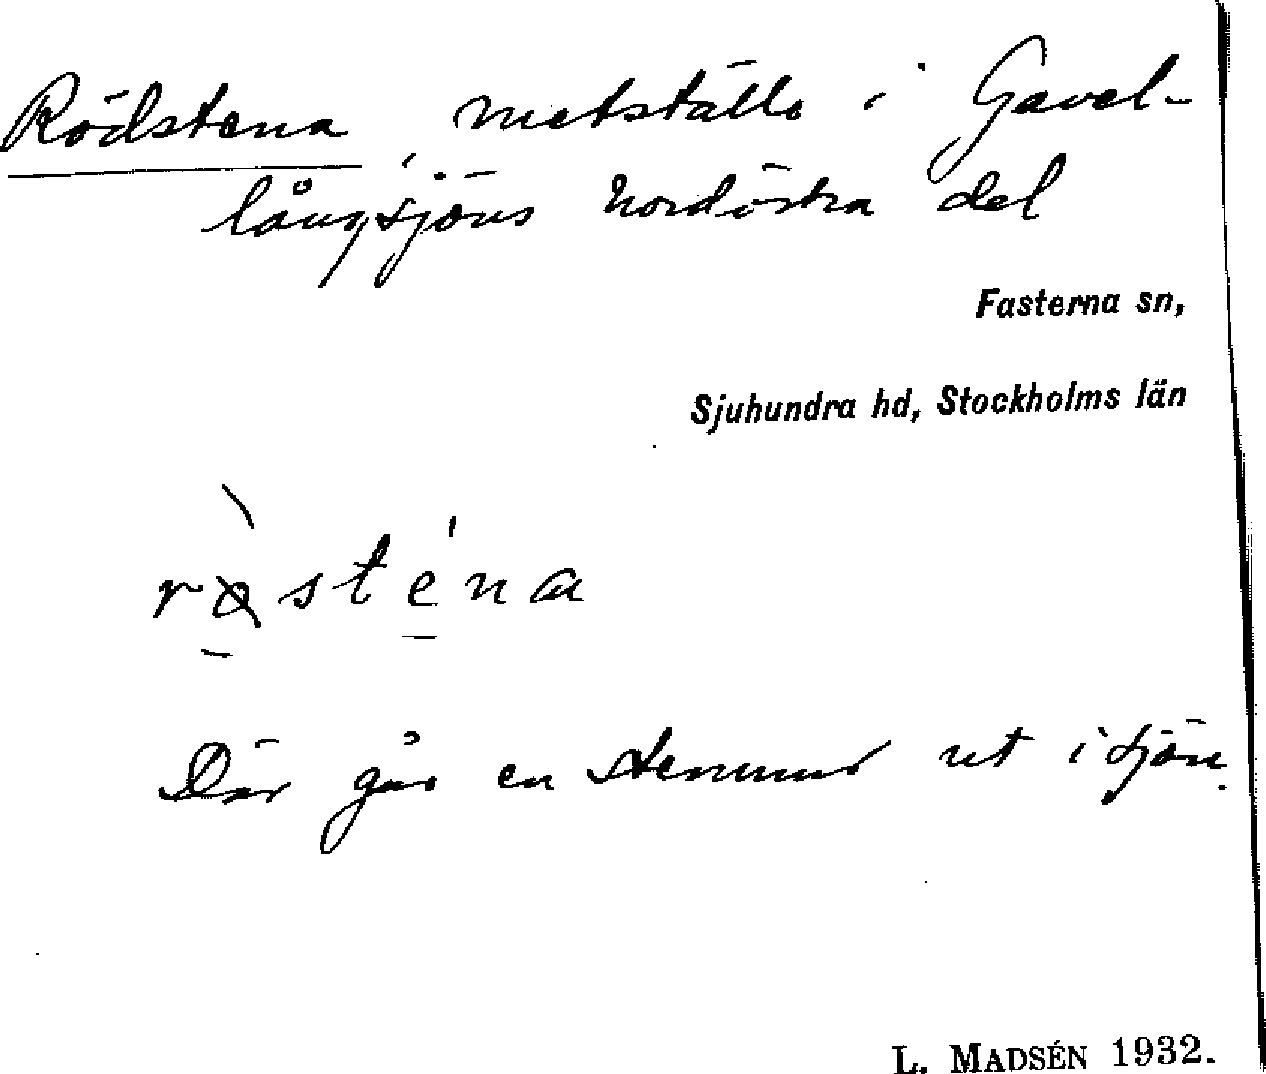 Rödstena, metställe i Gavel-
långsjöns nordöstra del
Fasterna sn,
Sjuhundra hd, Stockholms län
Där går en stenmur ut i sjön.
L. MADSÉN 1932.